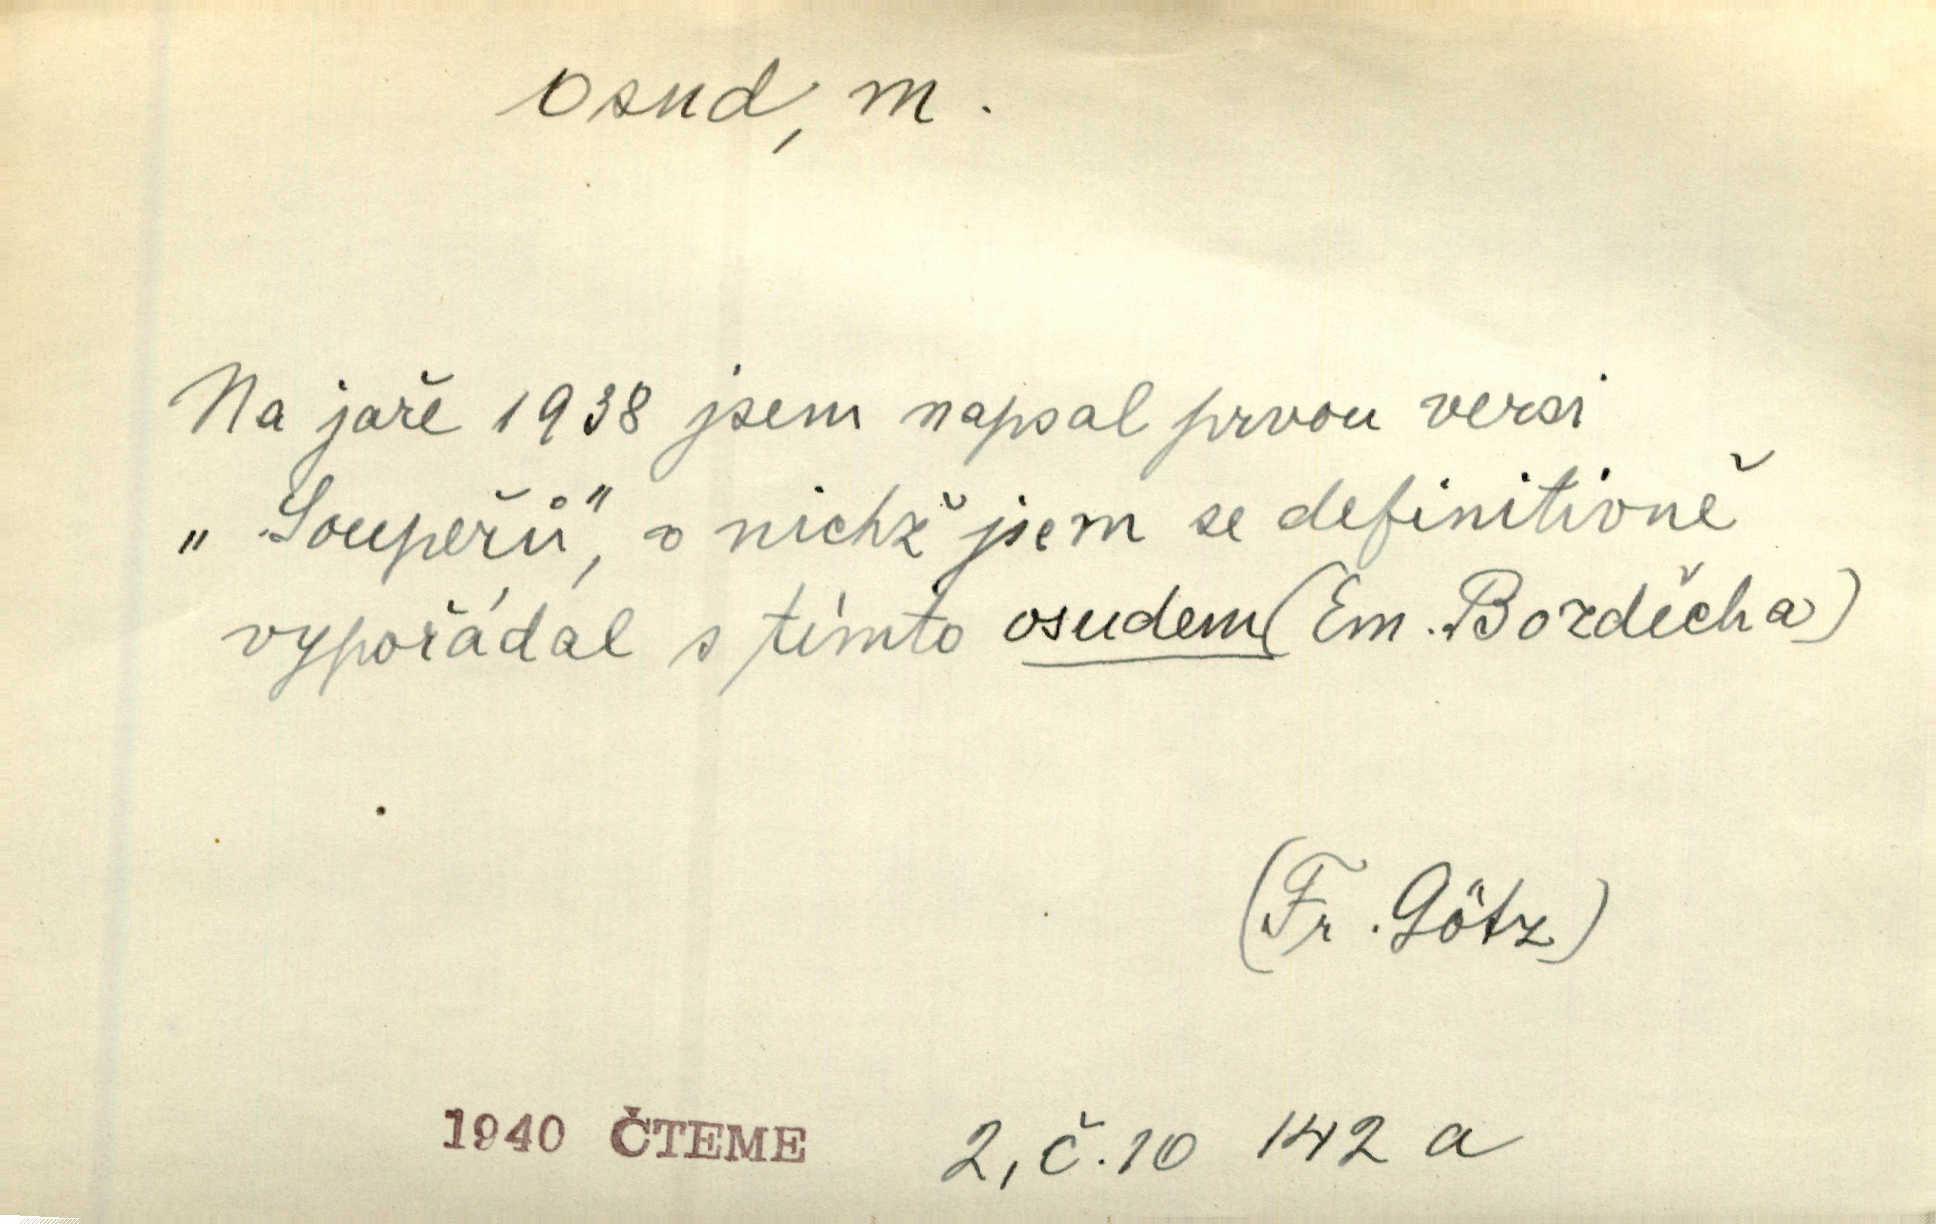 osud, m.
Na jaře 1938 jsem napsal prvou versi
„Soupeřů", v nichž jsem se definitivně
vypořádal s tímto osudem (Em. Bozděcha)
(Fr. Götz)
1940 ČTEME 2, č. 10 142 a